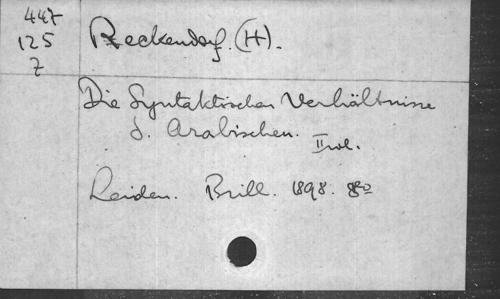 447
125
Z
Reckendorf. (H).
Die Syntaktischen Verhältnisse
d. Arabischen. II vol.
Leiden. Brill. 1898. 8vo